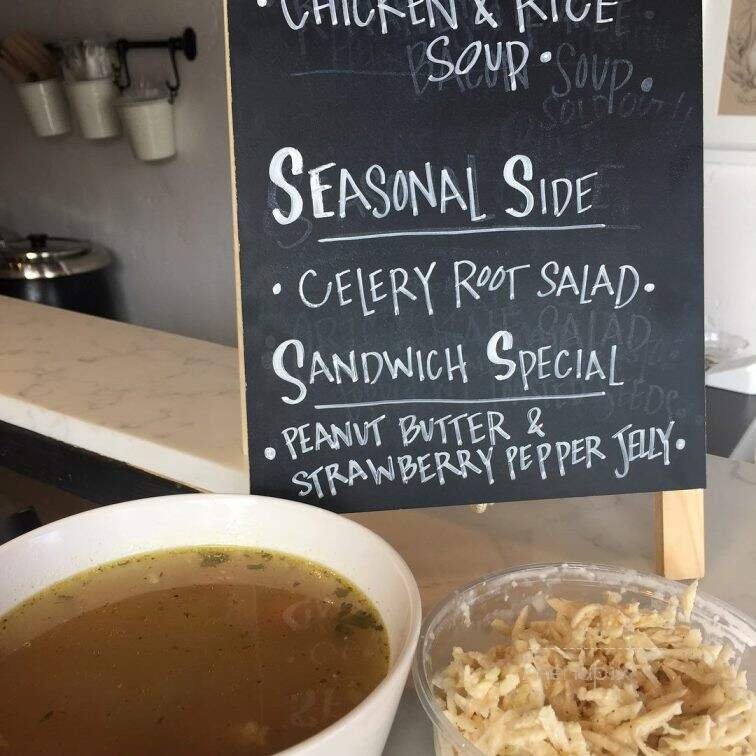 • CHICKEN & RICE
SOUP •
SEASONAL SIDE
• CELERY ROOT SALAD •
SANDWICH SPECIAL
• PEANUT BUTTER &
STRAWBERRY PEPPER JELLY •